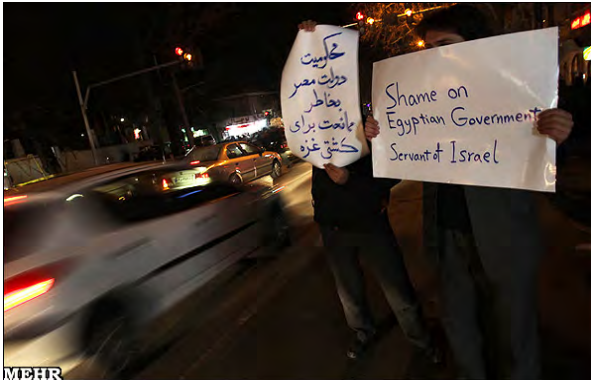 محکومیت
دولت مصر
بخاطر
ممانعت برای
کشتی غزه
Shame on
Egyptian Government
Servant of Israel
MEHR